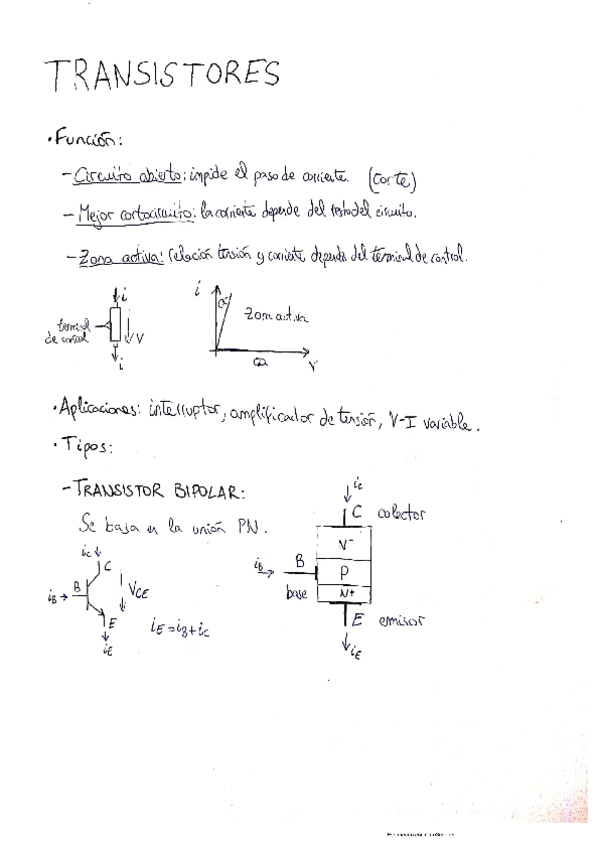 TRANSISTORES
·Función:
- Circuito abierto: impide el paso de corriente. (Corte)
- Mejor cortocircuito: la corriente depende del resto del circuito.
- Zona activa: relación tensión y corriente depende del terminal de control.
i
terminal de control
V
i
i
cc
Zona activa
ca
V
·Aplicaciones: interruptor, amplificador de tensión, V-I variable.
·Tipos:
- TRANSISTOR BIPOLAR:
Se basa en la unión PN.
ic
C
iB
B
VCE
E
iE
iE = iB + ic
ic
C colector
N-
iB
B
P
base
N+
E emisor
iE